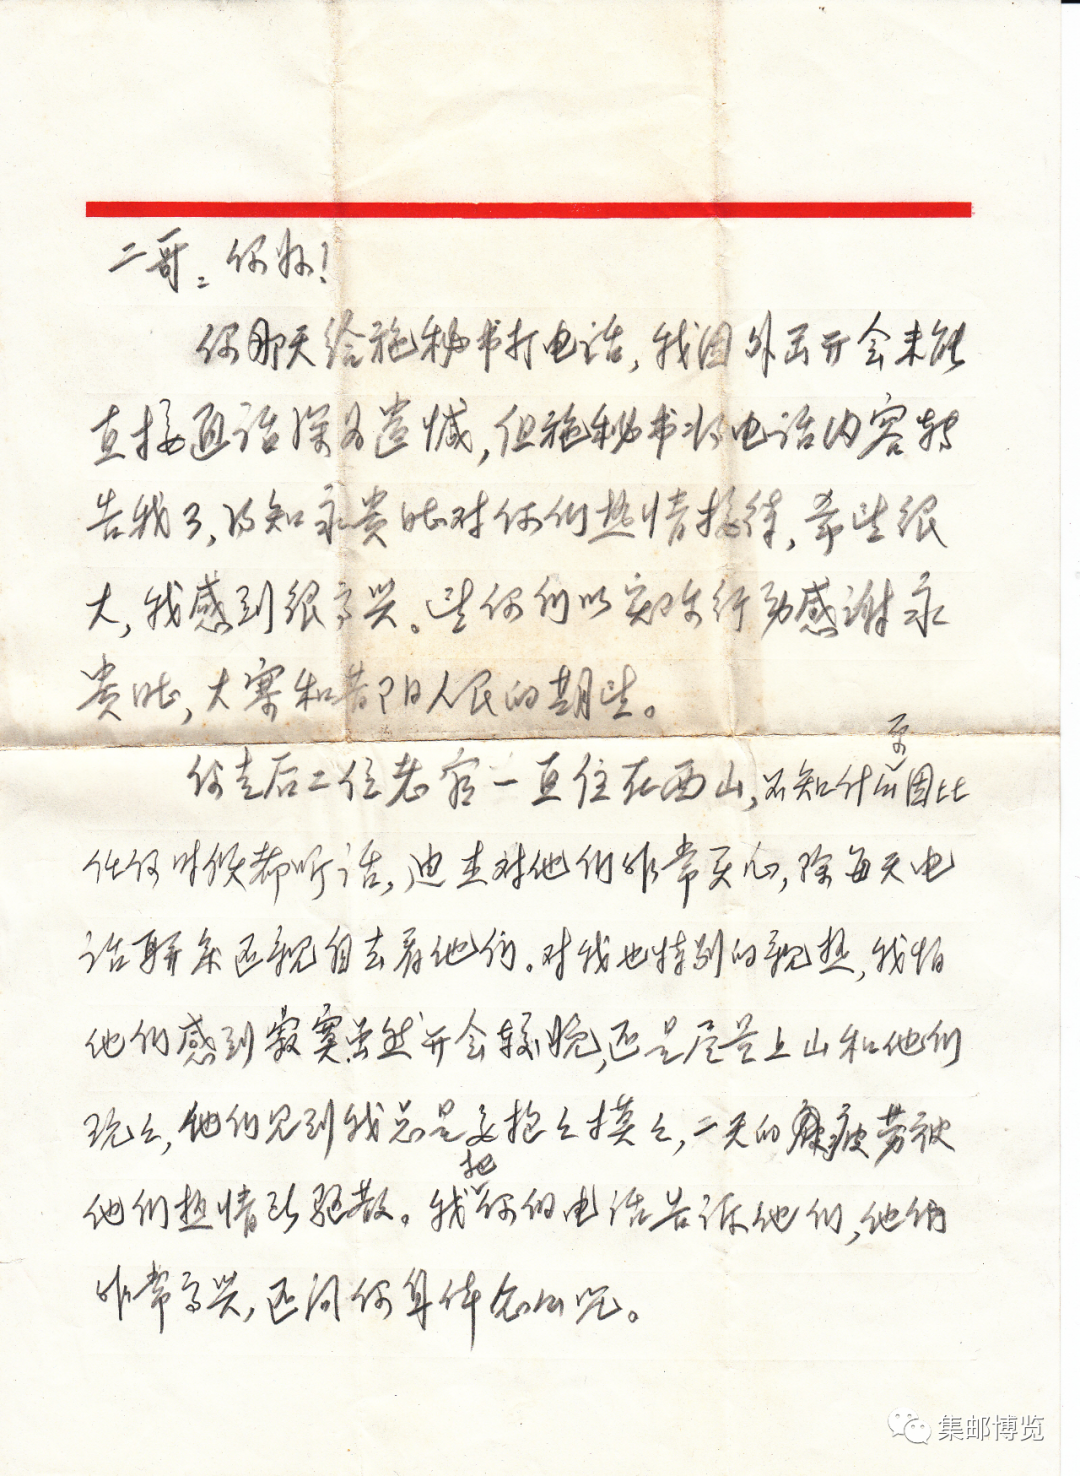 二哥：你好！
你那天给施秘书打电话，我因外出开会未能
直接通话深为遗憾，但施秘书将电话内容转
告我了，得知永贵同志对你们热情接待，希望很
大，我感到很高兴。望你们以实际行动感谢永
贵同志，大寨和昔阳人民的期望。
你走后二位老 一直住在西山，不知什么原因比
任何时候都听话，迪生对他们非常关心，除每天电
话联系还亲自去看他们。对我也特别的亲热，我怕
他们感到寂寞虽然开会较晚，还是尽量上山和他们
玩玩，他们见到我总是要抱抱摸摸，一天的疲劳被
他们热情所驱散。我把你的电话告诉他们，他们
非常高兴，还问你身体怎么呢。
集邮博览